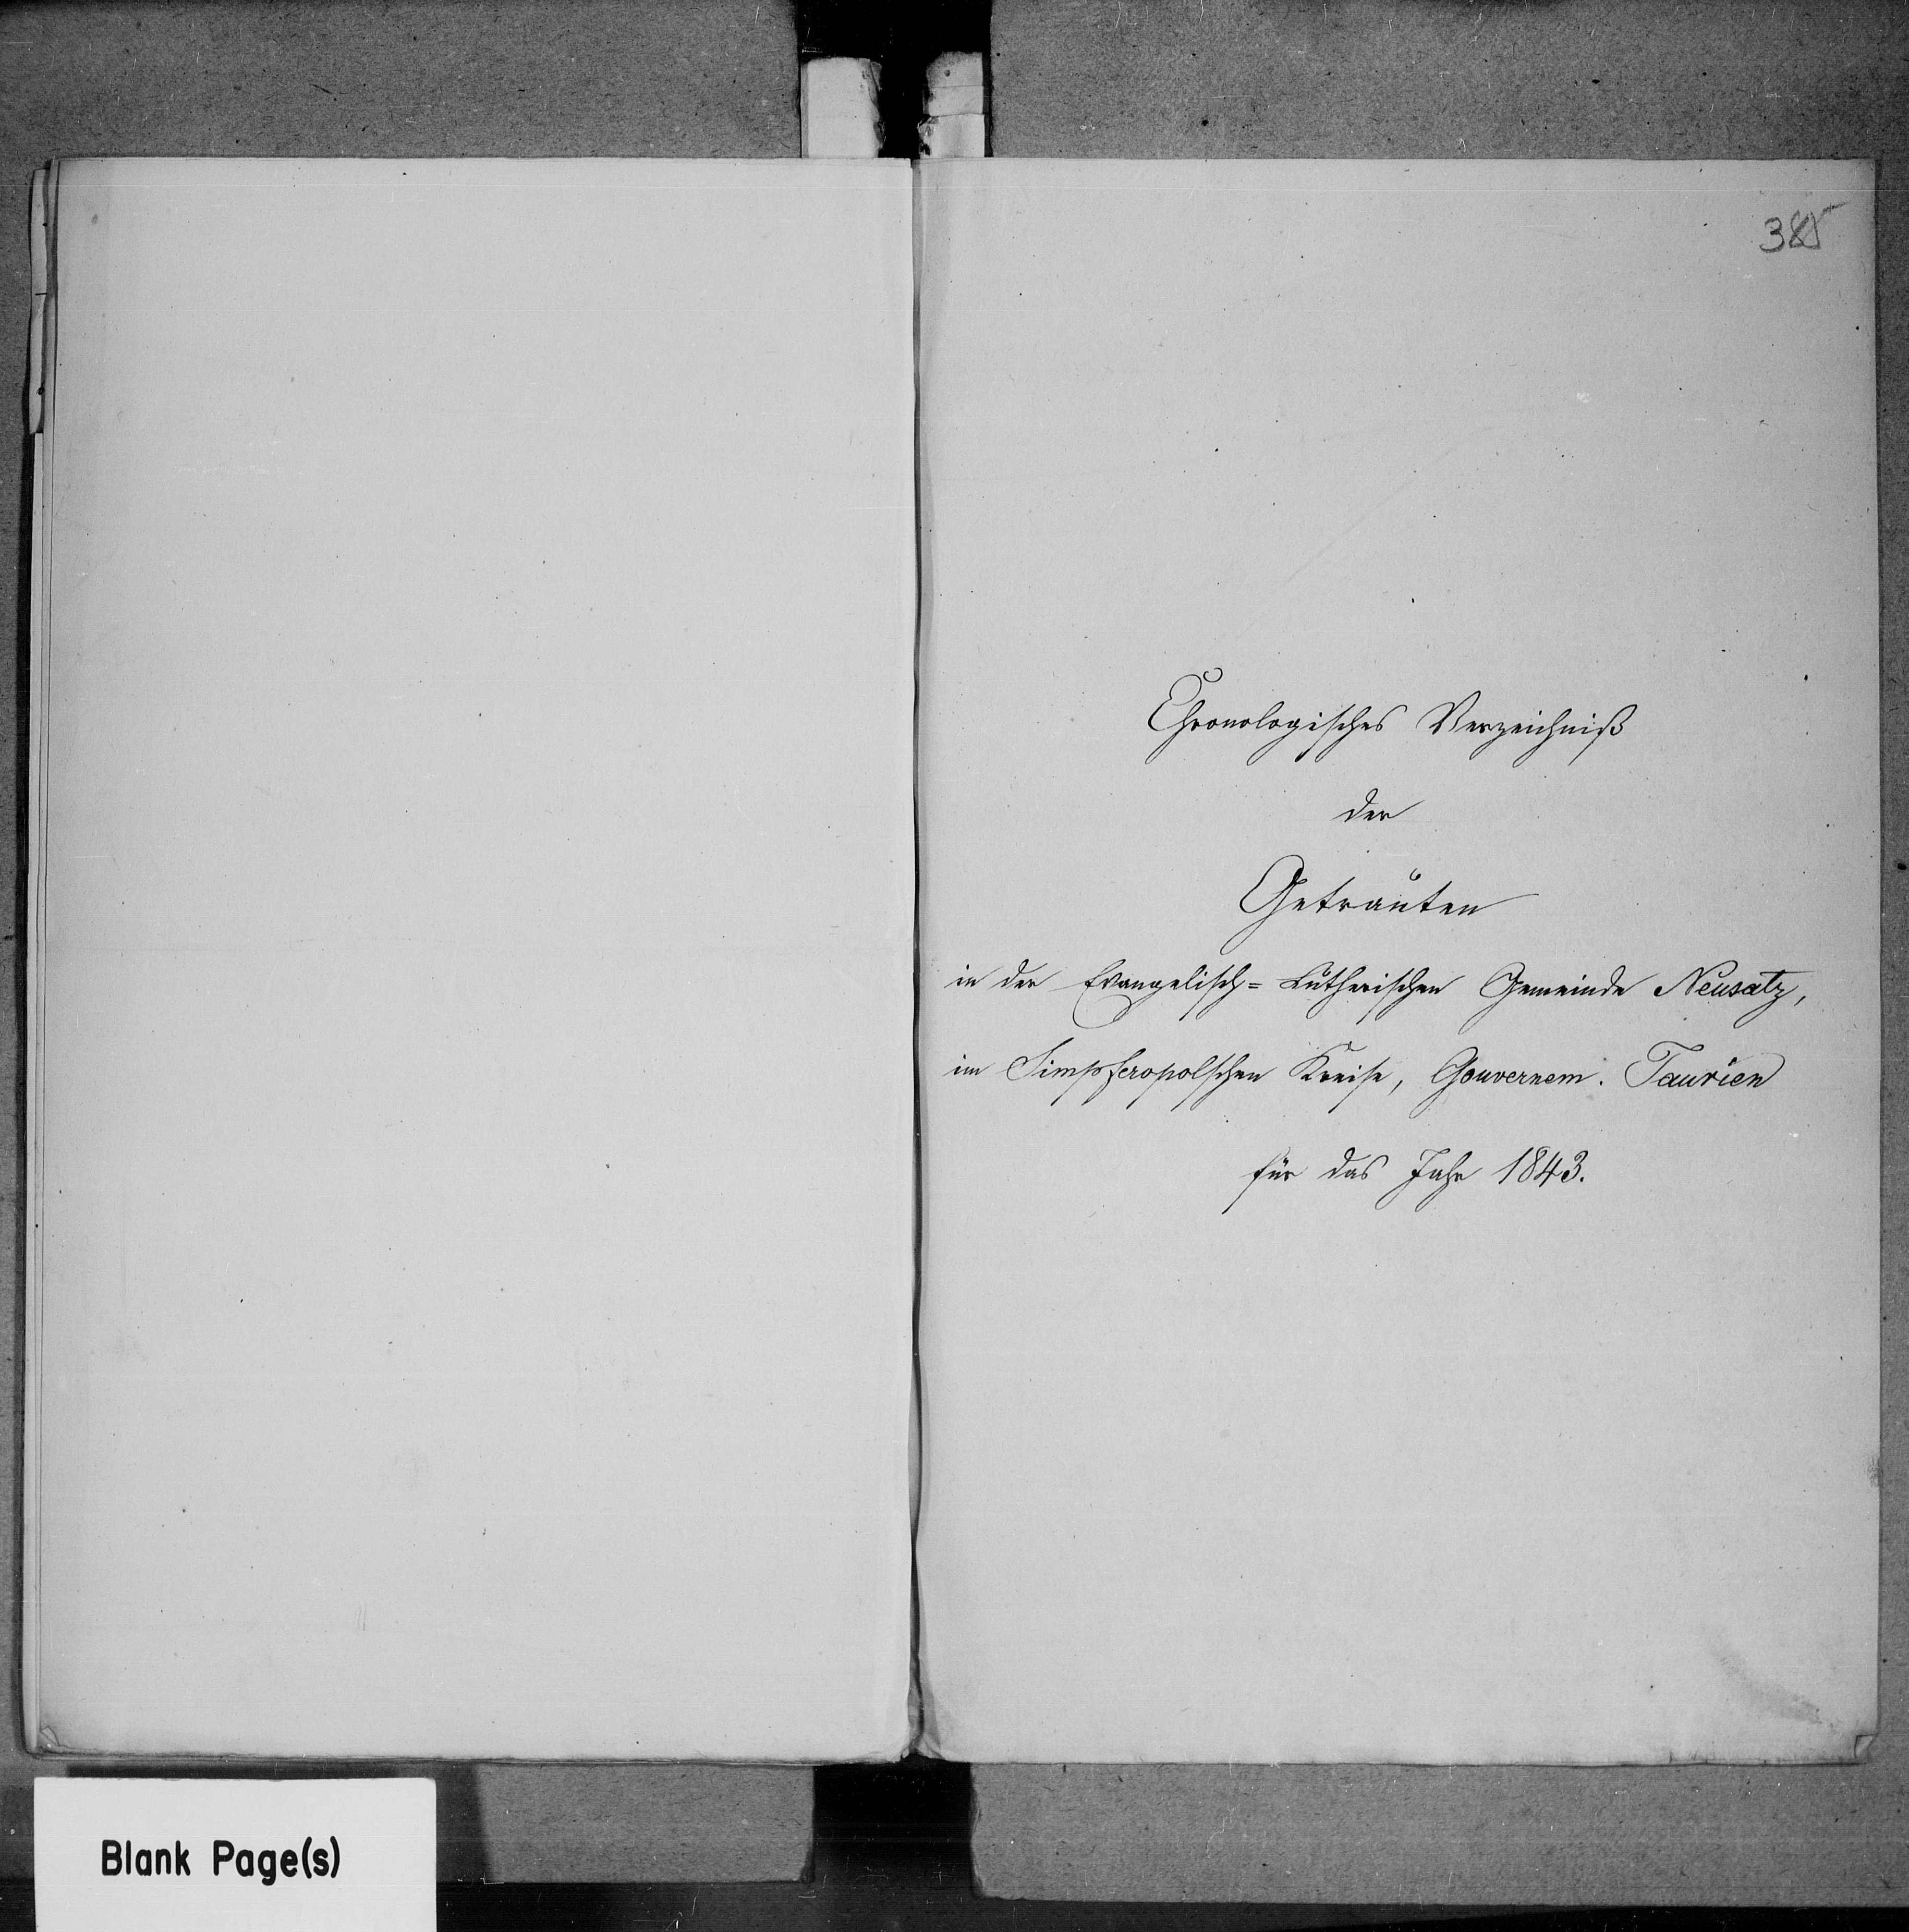 Chronologisches Verzeichniß
der
Getrauten
in der Evangelisch=Lutherischen Gemeinde Neusatz,
im Simpferopolschen Kreise, Gouvernem. Taurien
für das Jahr 1843.
Blank Page(s)